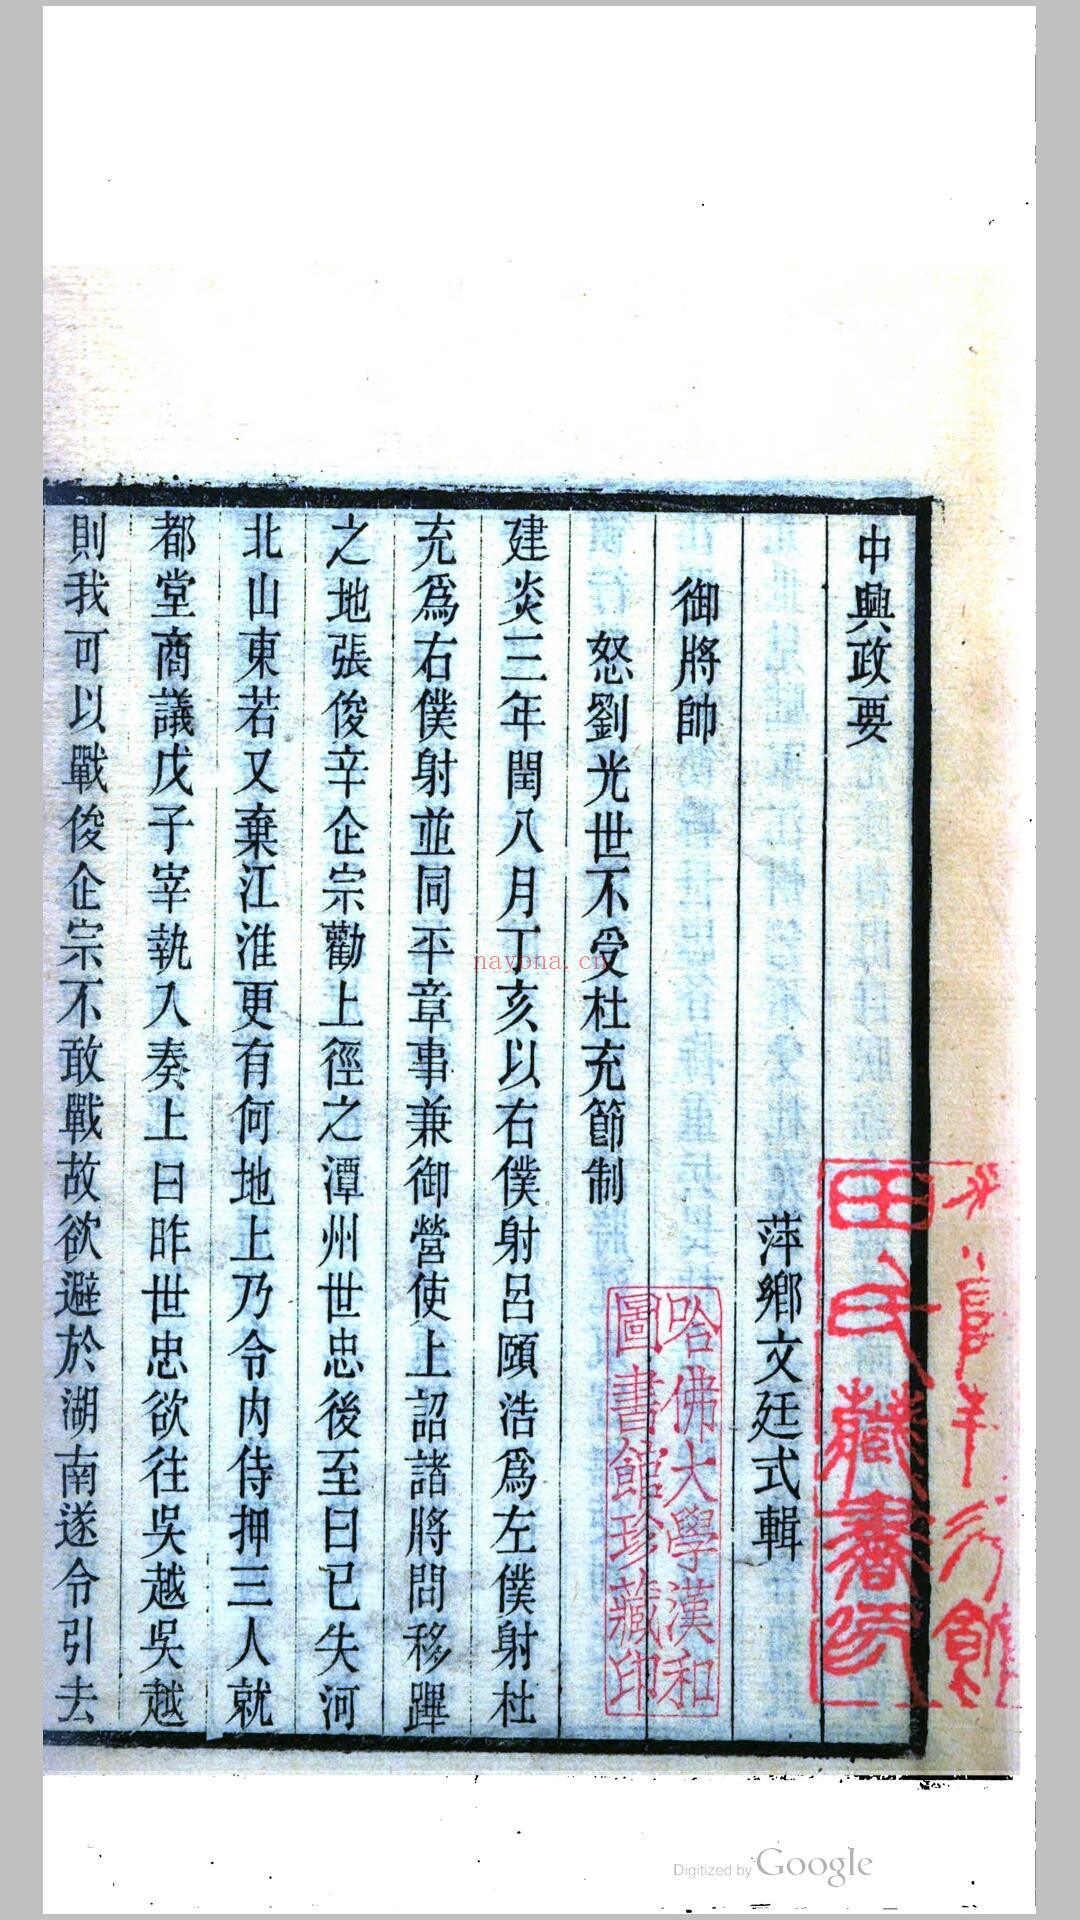 中興政要
萍鄉文廷式輯
御將帥
怒劉光世不受杜充節制
建炎三年閏八月丁亥以右僕射呂頤浩爲左僕射杜
充爲右僕射並同平章事兼御營使上詔諸將問移蹕
之地張俊辛企宗勸上徑之潭州世忠後至曰已失河
北山東若又棄江淮更有何地上乃令內侍押三人就
都堂商議戊子宰執入奏上曰昨世忠欲往吳越吳越
則我可以戰俊企宗不敢戰故欲避於湖南遂令引去
哈佛大學漢和
圖書館珍藏印
田氏藏書
nayona.cn
Digitized by Google